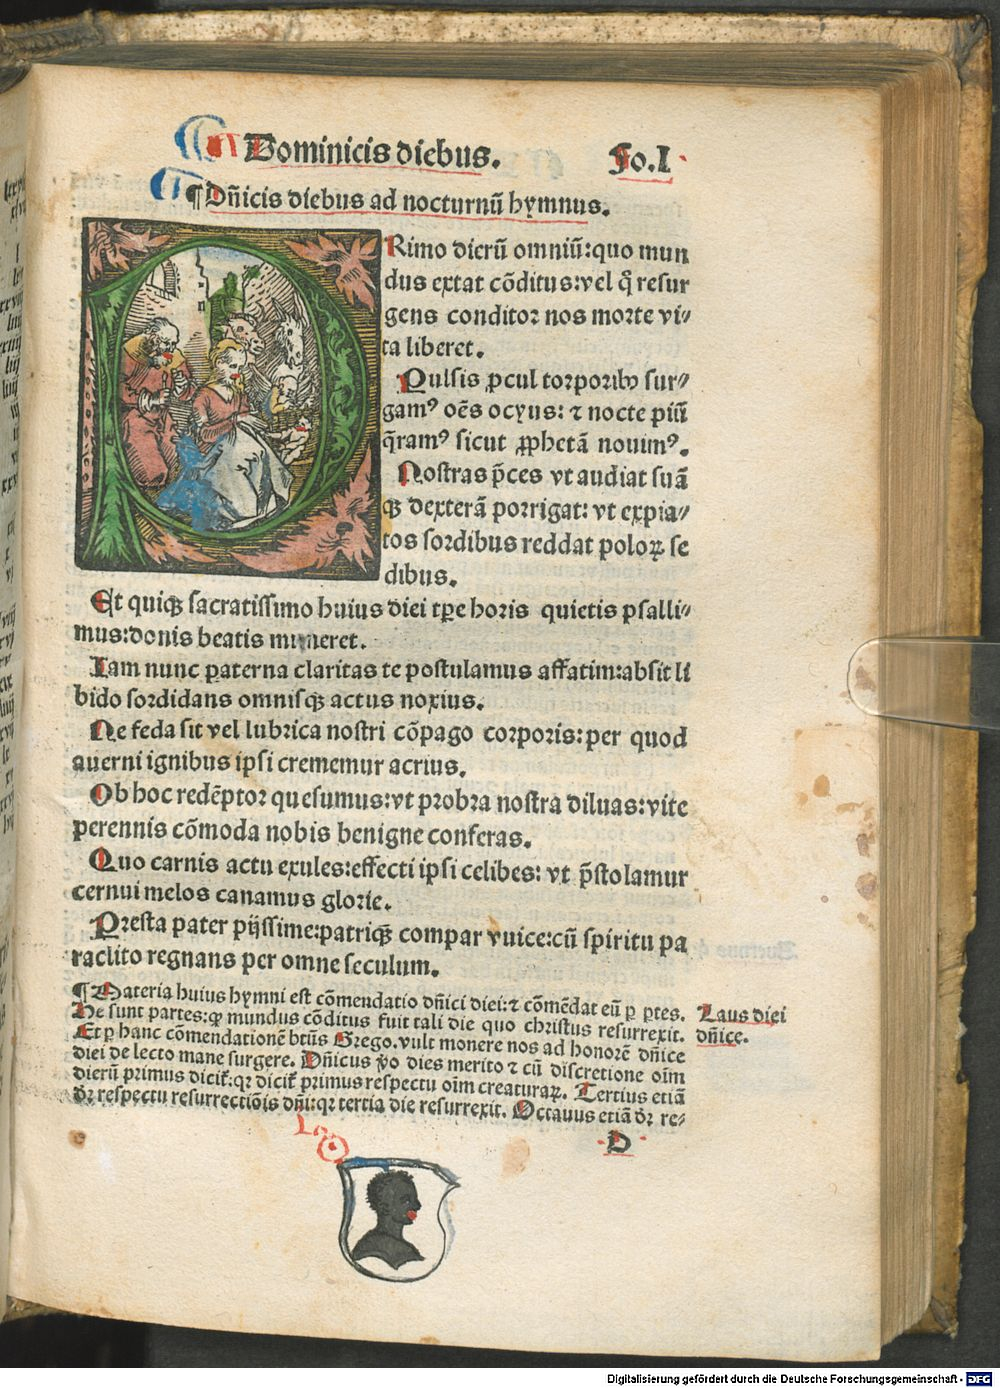 Dominicis diebus. Fo. I
¶ Dn̄icis diebus ad nocturnū hymnus.
PRimo dierū omniū: quo mun
dus extat cōditus: vel q̄ resur
gens conditor nos morte vi⸗
ta liberet.
Pulsis ꝓcul torporibꝰ sur⸗
gamꝰ oēs ocyus: ⁊ nocte piū
q̄ramꝰ sicut ꝓphetā nouimꝰ.
Nostras p̄ces vt audiat suā
qꝫ dexterā porrigat: vt expia⸗
tos sordibus reddat poloꝝ se
dibus.
Et quiqꝫ sacratissimo huius diei tꝑe horis quietis psalli⸗
mus: donis beatis muneret.
Iam nunc paterna claritas te postulamus affatim: absit li
bido sordidans omnisqꝫ actus noxius.
Ne feda sit vel lubrica nostri cōpago corporis: per quod
auerni ignibus ipsi crememur acrius.
Ob hoc redēptor quesumus: vt probra nostra diluas: vite
perennis cōmoda nobis benigne conferas.
Quo carnis actu exules: effecti ipsi celibes: vt p̄stolamur
cernui melos canamus glorie.
Presta pater pijssime: patriqꝫ compar vnice: cū spiritu pa
raclito regnans per omne seculum.
¶ Materia huius hymni est cōmendatio dn̄ici diei: ⁊ cōmēdat eū ꝑ ꝑtes.
He sunt partes: ꝙ mundus cōditus fuit tali die quo christus resurrexit.
Et ꝑ hanc cōmendationē btūs Grego. vult monere nos ad honorē dn̄ice
diei de lecto mane surgere. Dn̄icus v̄o dies merito ⁊ cū discretione oīm
dierū primus dicit̄: qꝛ dicit̄ primus respectu oīm creaturaꝝ. Tertius etiā
dr̄ respectu resurrectiōis dn̄i: qꝛ tertia die resurrexit. Octauus etiā dr̄ re⸗
Laus diei
dn̄ice.
D
Digitalisierung gefördert durch die Deutsche Forschungsgemeinschaft - DFG